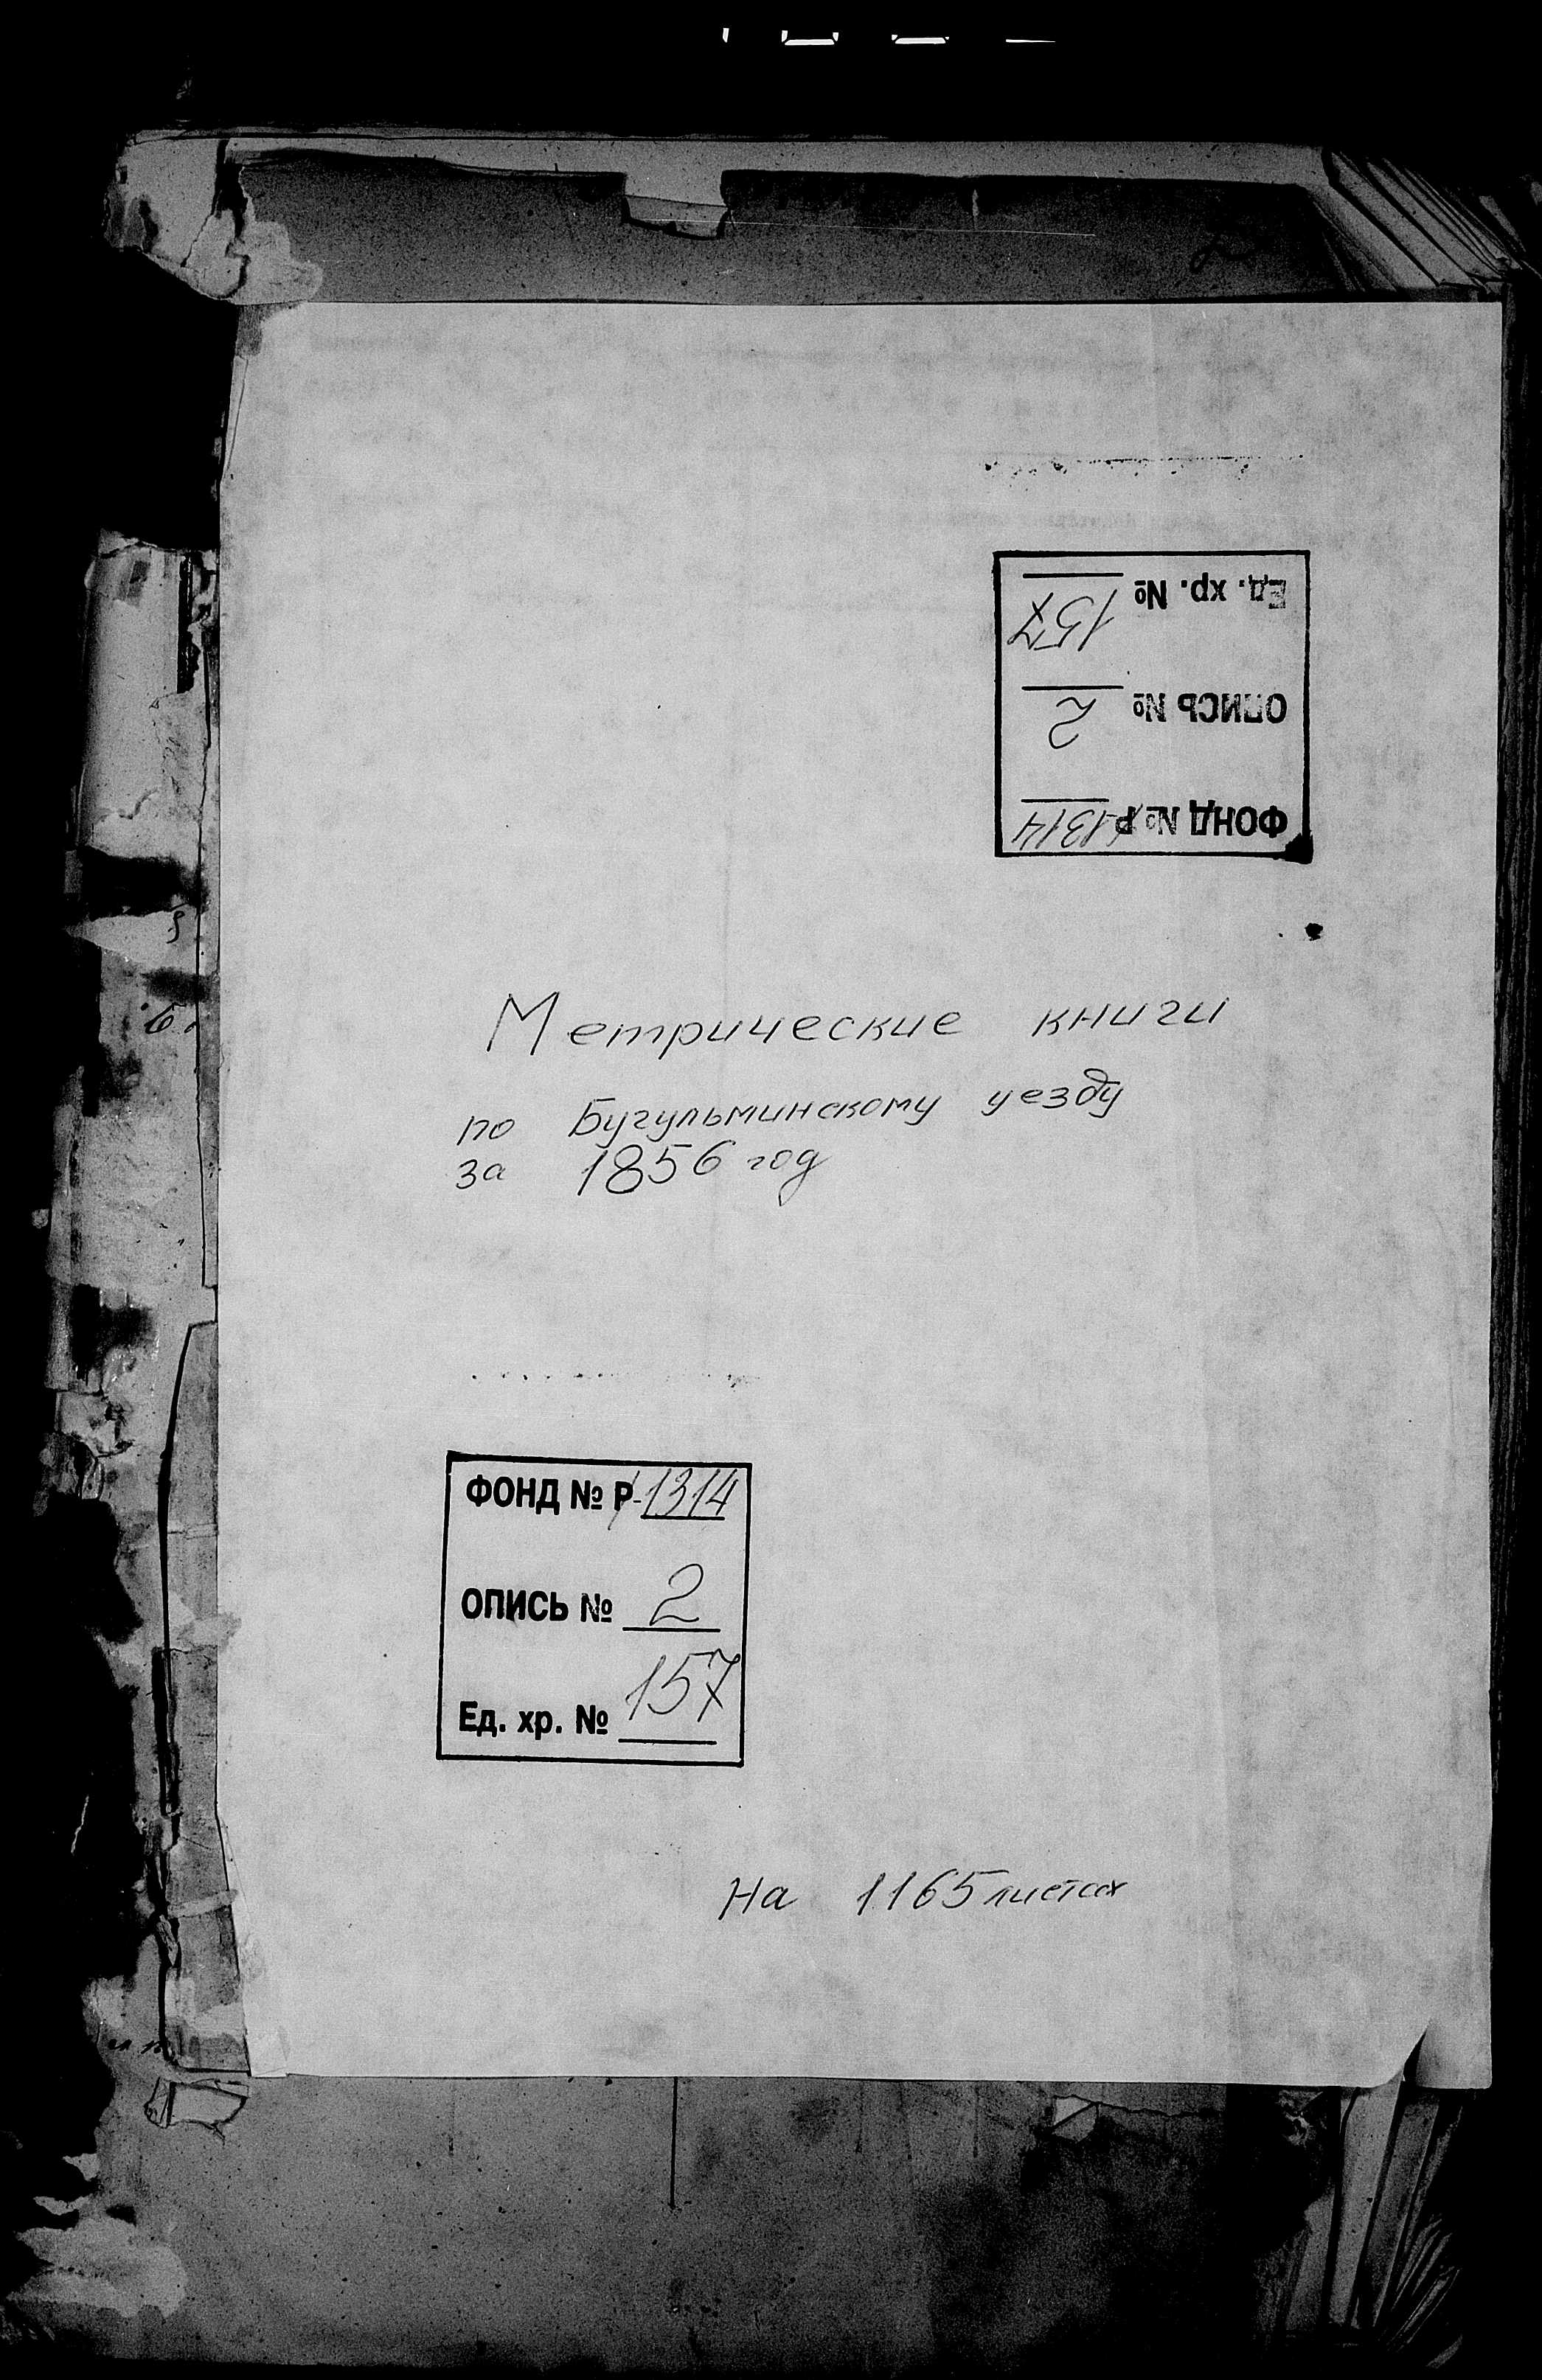 ФОНД № Р-1314
ОПИСЬ № 2
Ед. хр. № 157
Метрические книги
по Бугульминскому уезду
за 1856 год
ФОНД № Р-1314
ОПИСЬ № 2
Ед. хр. № 157
На 1165 листах